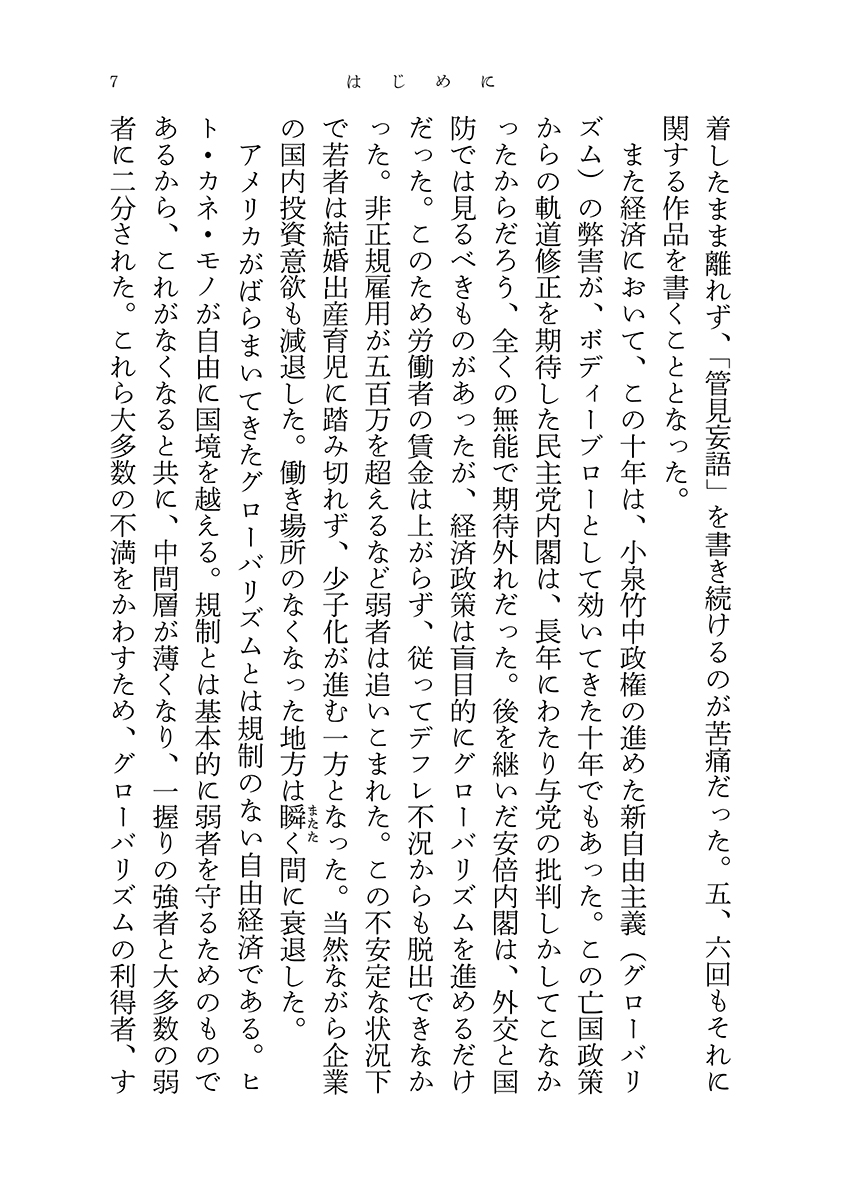 はじめに
7
着したまま離れず、「管見妄語」を書き続けるのが苦痛だった。五、六回もそれに
関する作品を書くこととなった。
また経済において、この十年は、小泉竹中政権の進めた新自由主義（グローバリ
ズム）の弊害が、ボディーブローとして効いてきた十年でもあった。この亡国政策
からの軌道修正を期待した民主党内閣は、長年にわたり与党の批判しかしてこなか
ったからだろう、全くの無能で期待外れだった。後を継いだ安倍内閣は、外交と国
防では見るべきものがあったが、経済政策は盲目的にグローバリズムを進めるだけ
だった。このため労働者の賃金は上がらず、従ってデフレ不況からも脱出できなか
った。非正規雇用が五百万を超えるなど弱者は追いこまれた。この不安定な状況下
で若者は結婚出産育児に踏み切れず、少子化が進む一方となった。当然ながら企業
の国内投資意欲も減退した。働き場所のなくなった地方は瞬またたく間に衰退した。
アメリカがばらまいてきたグローバリズムとは規制のない自由経済である。ヒ
ト・カネ・モノが自由に国境を越える。規制とは基本的に弱者を守るためのもので
あるから、これがなくなると共に、中間層が薄くなり、一握りの強者と大多数の弱
者に二分された。これら大多数の不満をかわすため、グローバリズムの利得者、す